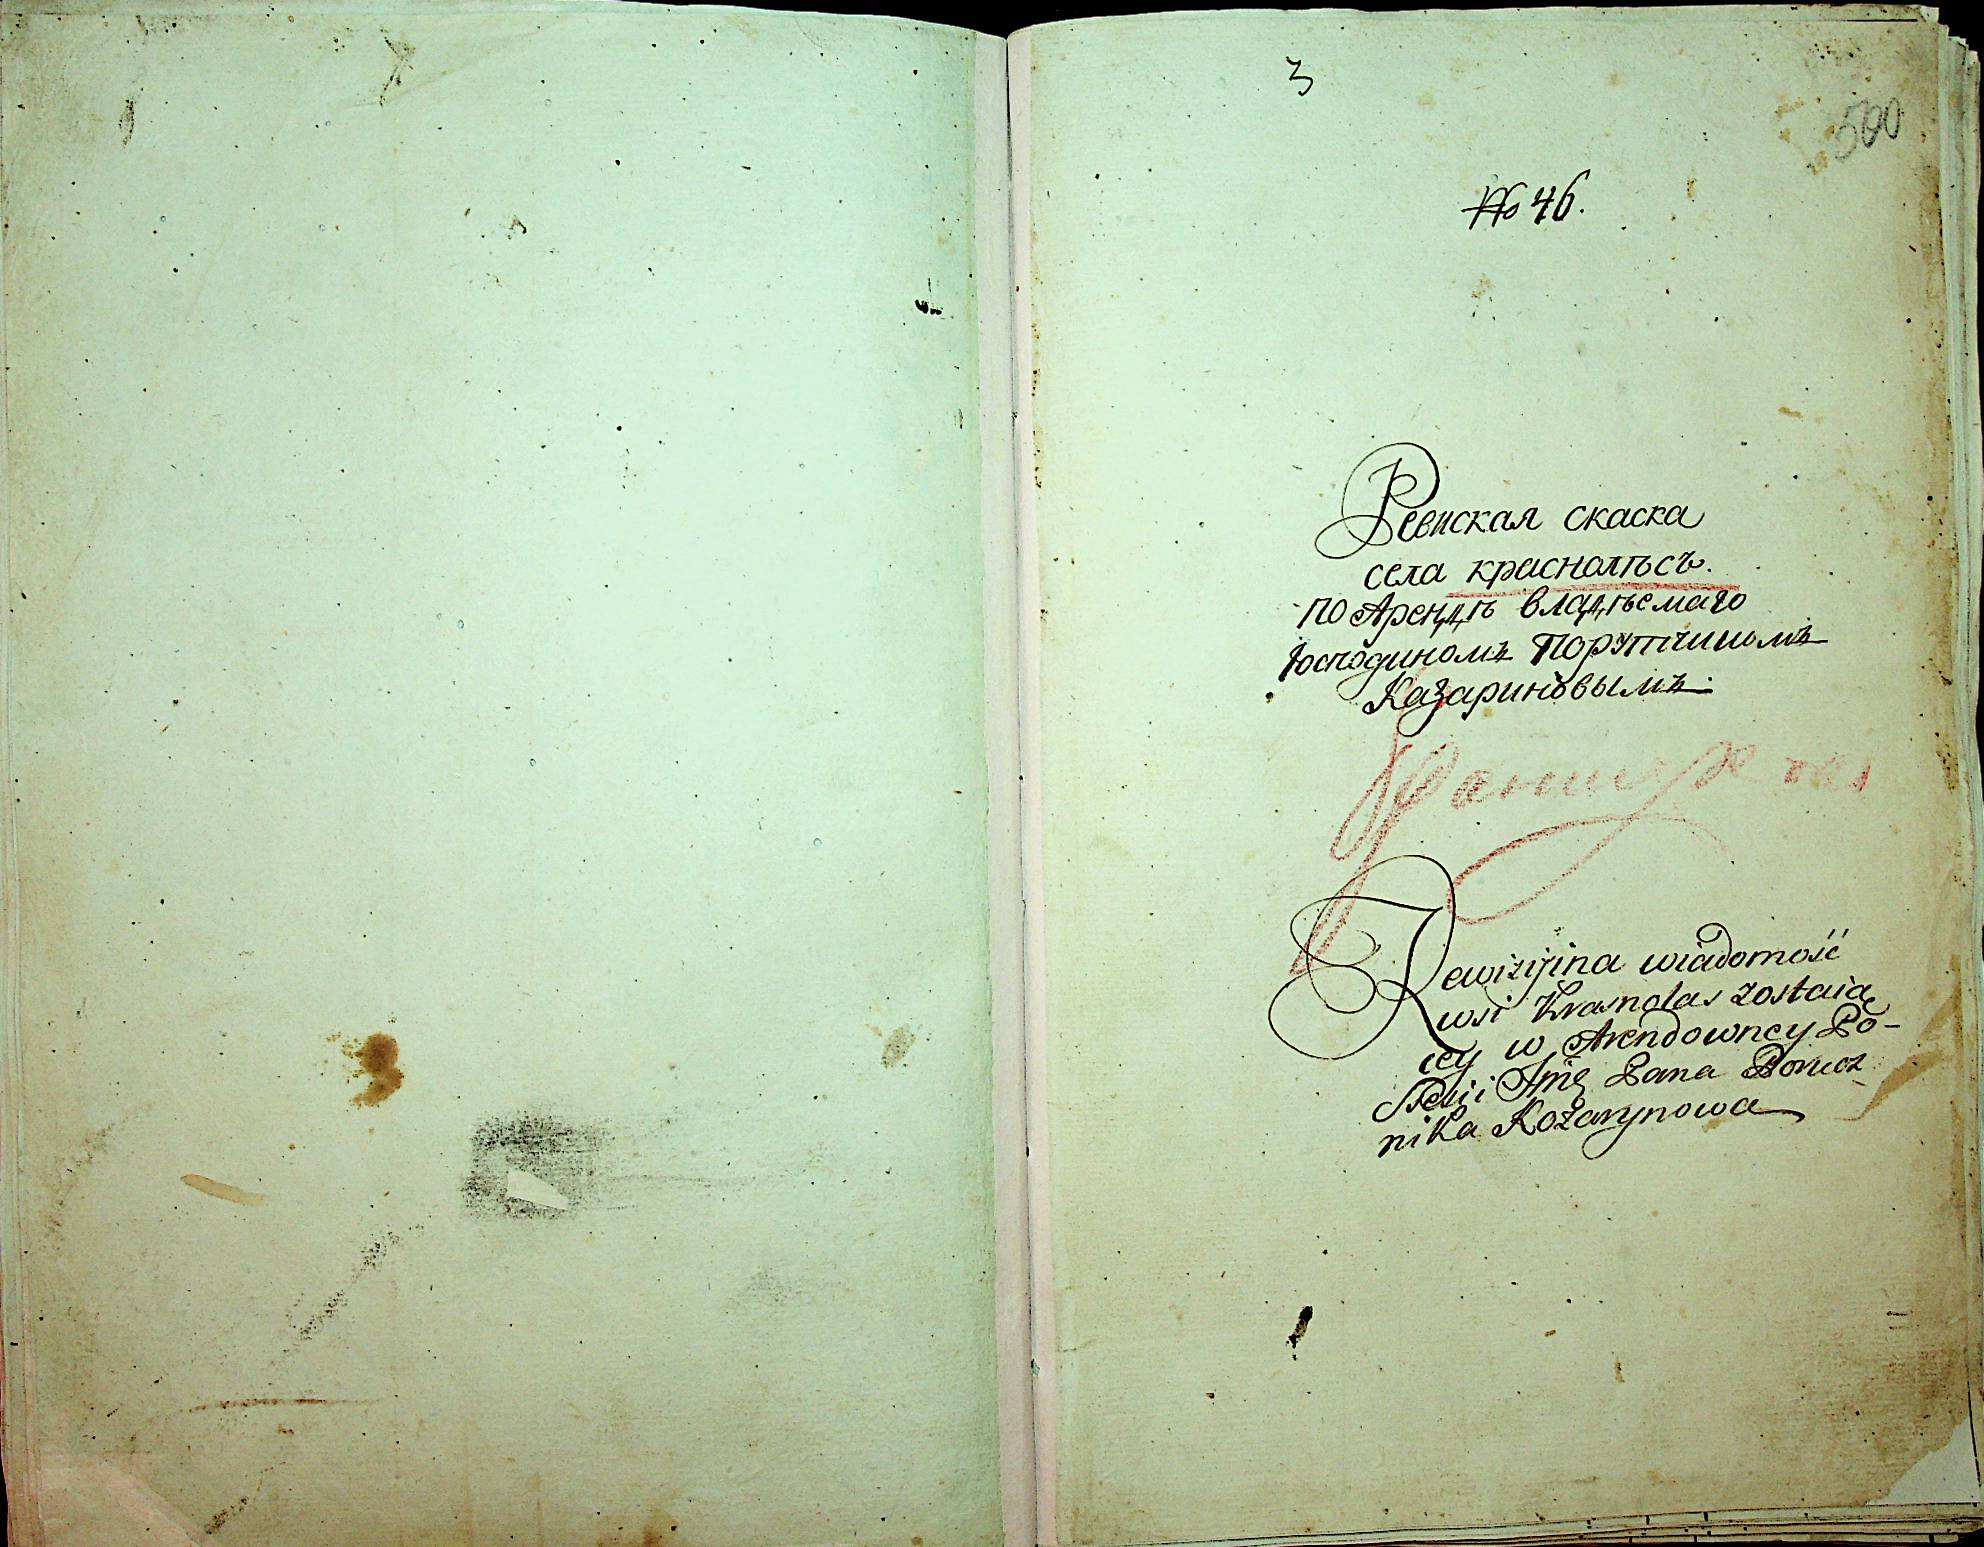 3
500
№ 46.
Ревиская скаска
села краснолѣсъ.
по Арендѣ владѣемаго
Господиномъ Порутчикомъ
Казариновымъ.
Rewizyjna wiadomość
wsi Krasnolas zostaią
cey w Arendowney Po-
ssesii Jmę Pana Porucz
nika Kozarynowa